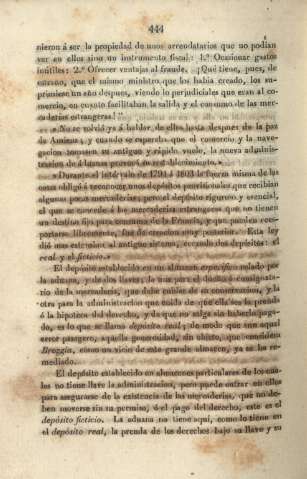 444
nieron á ser la propiedad de unos arrendatarios que no podian
ver en ellos sino un instrumento fiscal: 1.º Ocasionar gastos
inútiles: 2.º Ofrecer ventajas al fraude. ¡Qué tiene, pues, de
estraño, que el mismo ministro que los habia creado, los su-
primiese un año despues, viendo lo perjudiciales que eran al co-
mercio, en cuanto facilitaban la salida y el consumo de las mer-
caderias estrangeras!"
»No se volvió ya á hablar de ellos hasta despues de la paz
de Amiens, y cuando se esperaba que el comercio y la nave-
gacion su antiguo y rápido vuelo, la nueva adminis-
tracion de aduanas provocó su restablecimiento.»
»Durante el intérvalo de 1791 á 1803 la fuerza misma de las
cosas obligó á reconocer unos depósitos puerto que recibian
algunas pocas mercaderias; pero el depósito riguroso y esencial,
el que se concede á los mercaderias estrangeras que no tienen
un destino fijo para consumo de la Francia, y que pueden rees-
portarse libremente, fue de creacion muy posterior. Esta ley
dió mas estension al antiguo sistema, creando dos depósitos: el
real y el ficticio.»
El depósito establecido en un almacen específico celado por
la aduana, y de dos llaves; la una para el dueño ó consignata-
rio de la mercaderia, que debe cuidar de su conservacion, y la
otra para la administracion que cuida de que ella sea la prenda
ó la hipoteca del derecho, y de que no salga sin haberlo paga-
do, es lo que se llama depósito real; de modo que aun aquel
error pasagero, aquella generosidad, sin objeto, que considera
Breggia, como un vicio de este grande almacen, ya se les re-
mediado.
El depósito establecido en almacenes particulares de los cua-
les no tiene llave la administracion, pero puede entrar en ellos
para asegurarse de la existencia de las mercaderias, que no de-
ben moverse sin su permiso, ó el pago del derecho, este es el
depósito ficticio. La aduana no tiene aquí, como lo tiene en
el depósito real, la prenda de los derechos bajo su llave y su